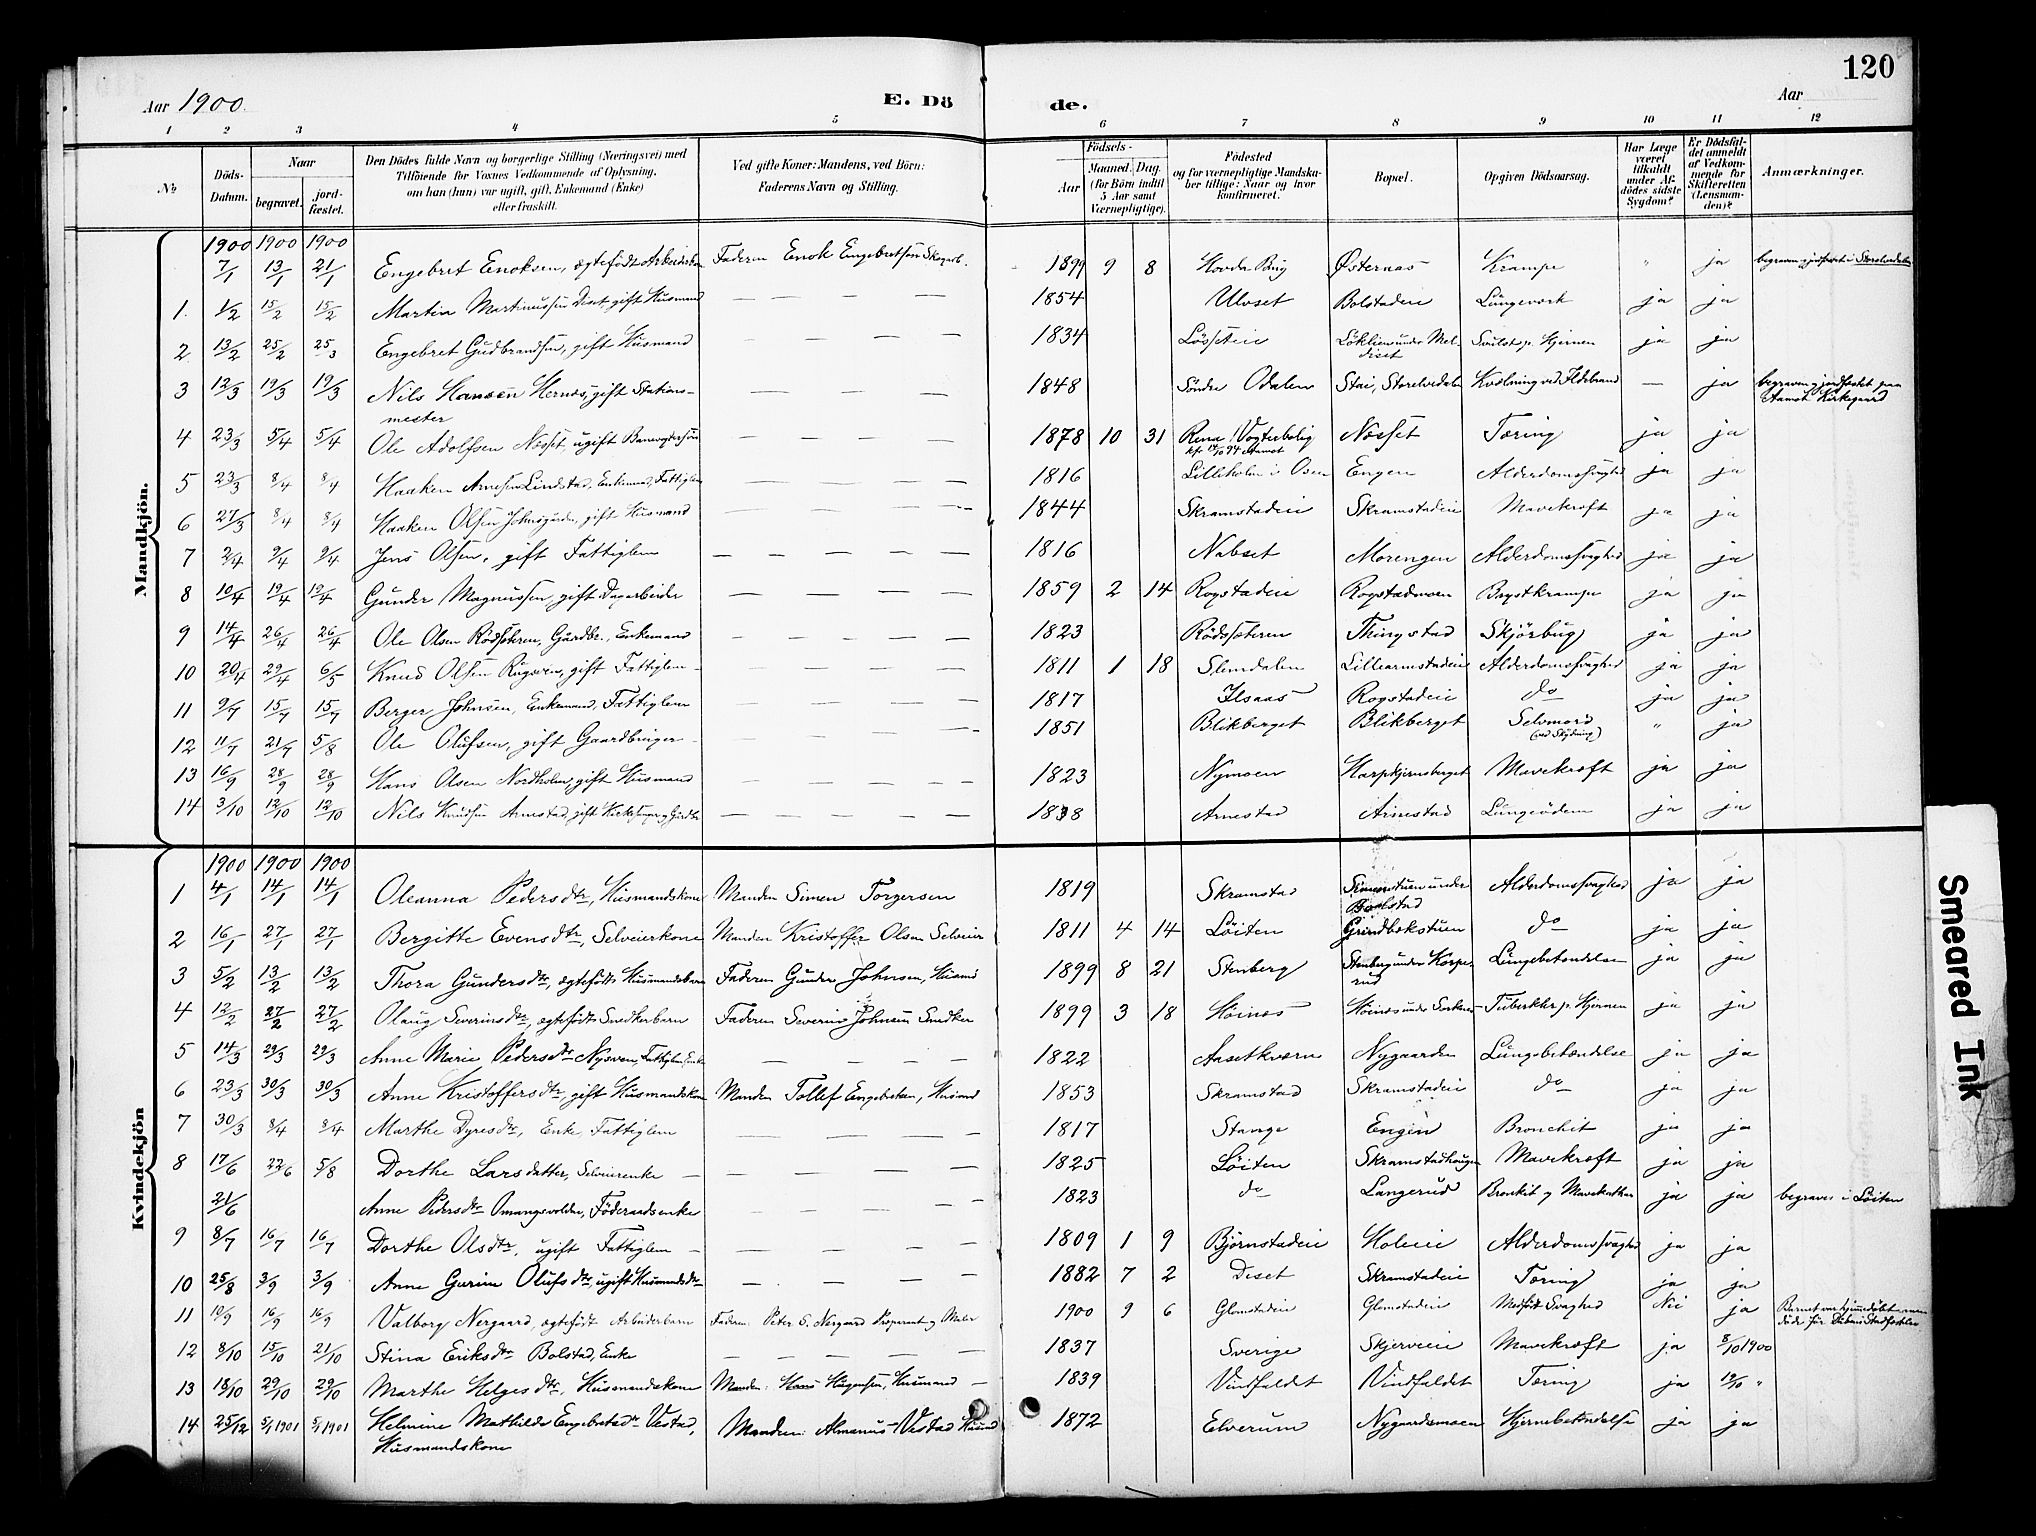 120
Aar 1900.
E. Dö
de.
Aar
1 2 3 4 5 6 7 8 9 10 11 12
No
Döds-Datum.
Naar
begravet.
jord-fæstet.
Den Dödes fulde Navn og borgerlige Stilling (Næringsvei) med
Tilföiende for Voxnes Vedkommende af Oplysning,
om han (hun) var ugift, gift, Enkemand (Enke)
eller fraskilt.
Ved gifte Koner: Mandens, ved Börn:
Faderens Navn og Stilling.
Födsels-
Aar
Maaned. Dag.
(for Börn indtil
5 Aar samt
Værnepligtige).
Födested
og for værnepligtige Mandska-
ber tillige: Naar og hvor
konfirmeret.
Bopæl.
Opgiven Dödsaarsag.
Har Læge
været
tilkaldt
under Af-
dödes sidste
Sygdom?
Er Dödsfal-
det anmeldt
af Vedkom-
mende for
Skifteretten
(Lensman-
den)?
Anmærkninger.
Mandkjön.
1900 1900 1900
7/1 13/1 21/1 Engebret Enoksen, ægtefödt Faderen Enok Engebretsen 1899 9 8 Østernæs Krampe " ja begraven og jordfæstet i Storelvedalen
1. 1/2 15/2 15/2 Martin Martinussen Diset, gift Husmand — — — — 1854 Ulvset Bolstadeie Lungeværk ja ja
2 13/2 25/2 25/3 Engebret Gudbrandsen, gift Husmand — — — — 1834 Løsseteie Svulst p. Hjernen ja ja
3 12/3 19/3 19/3 Nils Hansen Hernæs, gift Stations-
mester — — — — 1848 Søndre Odalen Stai, Storelvedalen Kvælning ved Ildebrand — ja begraven og jordfæstet paa
Aamot Kirkegaard
4 23/3 5/4 5/4 Ole Adolfsen Næsset, ugift — — — — 1878 10 31 Rena Vogterbolig Næsset Tæring ja ja
5 23/3 8/4 8/4 Haaken Arnesen Lindstad, Enkemand, Fattiglem — — — — 1816 Lilleholm i Osen Engen Alderdomssvaghed ja ja
6 27/3 8/4 8/4 Haaken Olsen gift Husmand — — — — 1844 Skramstadeie Skramstadeie Mavekræft ja ja
7 2/4 9/4 9/4 Jens Olsen, gift Fattiglem — — — — 1816 Nabset Morengen Alderdomssvaghed ja ja
8 10/4 19/4 19/4 Gunder Magnussen, gift Dagarbeider — — — — 1859 2 14 Rogstadeie Rogstadmoen Brystkrampe ja ja
9 14/4 26/4 26/4 Ole Olsen Rödsæteren, Gaardbr., Enkemand — — — — 1823 Rödsæteren Thingstad Skjörbug ja ja
10 20/4 29/4 6/5 Knud Olsen Rugsveen, gift Fattiglem — — — — 1811 1 18 Slemdalen Lillearnestadeie Alderdomssvaghed ja ja
11 9/7 15/7 15/7 Berger Johnsen, Enkemand, Fattiglem — — — — 1817 Ilsaas Rogstadeie do ja ja
12 11/7 21/7 5/8 Ole Olufsen, gift Gaardbruger — — — — 1851 Blikberget Blikberget Selvmord
(ved Skydning) " ja
13 16/9 28/9 28/9 Hans Olsen Nordholen, gift Husmand — — — — 1823 Nymoen Harpkjernsberget Mavekræft ja ja
14 3/10 12/10 12/10 Nils Knudsen Arnestad, gift Kirkesanger og Gårdbr — — — — 1838 Arnestad Arnestad Lungeödem ja ja
Kvindekjön
1900 1900 1900
1 4/1 14/1 14/1 Oleanna Pedersdtr, Husmandskone Manden Simen Torgersen 1819 Skramstad Simenstuen under
Bolstad Alderdomssvaghed ja ja
2 16/1 27/1 27/1 Bergitte Evensdtr, Selveierkone Manden Kristoffer Olsen Selveier 1811 4 14 Løiten Grindbakstuen do ja ja
3 5/2 13/2 13/2 Thora Gundersdtr, ægtefödt Husmandsbarn Faderen Gunder Johnsen, Husmd 1899 8 21 Stenberg Stenberg under Lungebetændelse ja ja
4 12/2 27/2 27/2 Olaug Severinsdtr, ægtefödt Snedkerbarn Faderen Severin Johnsen Snedker 1899 3 18 Høinæs Høinæs under Tuberkler p. Hjernen ja ja
5 14/3 29/3 29/3 Anne Marie Pedersdtr Nysveen, Fattiglem, Enke — — — 1822 Aasetkværn Nygaarden Lungebetændelse ja ja
6 23/3 30/3 30/3 Anne Kristoffersdtr, gift Husmandskone Manden Tollef Engebretsen, Husmand 1853 Skramstad Skramstadeie do ja ja
7 30/3 8/4 8/4 Marthe Dyresdtr, Enke, Fattiglem — — — — 1817 Stange Engen Bronchit ja ja
8 17/6 22/6 5/8 Dorthe Larsdatter, Selveierenke — — — — 1825 Løiten Skramstadhaugen Mavekræft ja ja
21/6 Anne Pedersdtr Omangsvolden, Föderaadsenke — — — — 1823 do Langerud Bronkit og Mavekatharr ja ja begraves i Løiten
9 8/7 16/7 16/7 Dorthe Olsdtr, ugift Fattiglem — — — — 1809 1 9 Björnstadeie Holeeie Alderdomssvaghed ja ja
10 25/8 3/9 3/9 Anne Gurine Olufsdtr, ugift Husmandsdtr — — — — 1882 7 2 Diset Skramstadeie Tæring ja ja
11 10/9 16/9 16/9 Valborg Nergaard, ægtefödt Arbeiderbarn Faderen: Peter S. Nergaard og Maler 1900 9 6 Glomstadeie Glomstadeie Medfödt Svaghed Nei ja Barnet var hjemmedöbt men
döde för Daabens Stadfæstelse
12 8/10 15/10 21/10 Stina Eriksdtr Bolstad, Enke — — — — 1837 Sverige Skjerveeie Mavekræft ja 8/10 1900
13 18/10 29/10 29/10 Marthe Helgesdtr, Husmandskone Manden: Hans Haagensen, Husmand 1839 Vindfaldet Vindfaldet Tæring ja 19/10 "
14 25/12 5/1 1901 5/1 1901 Helmine Mathilde Engebretsdtr Vestad,
Husmandskone Manden: Almanus Vestad Husmd 1872 Elverum Nygaardsmoen Hjernebetændelse ja ja
Smeared Ink